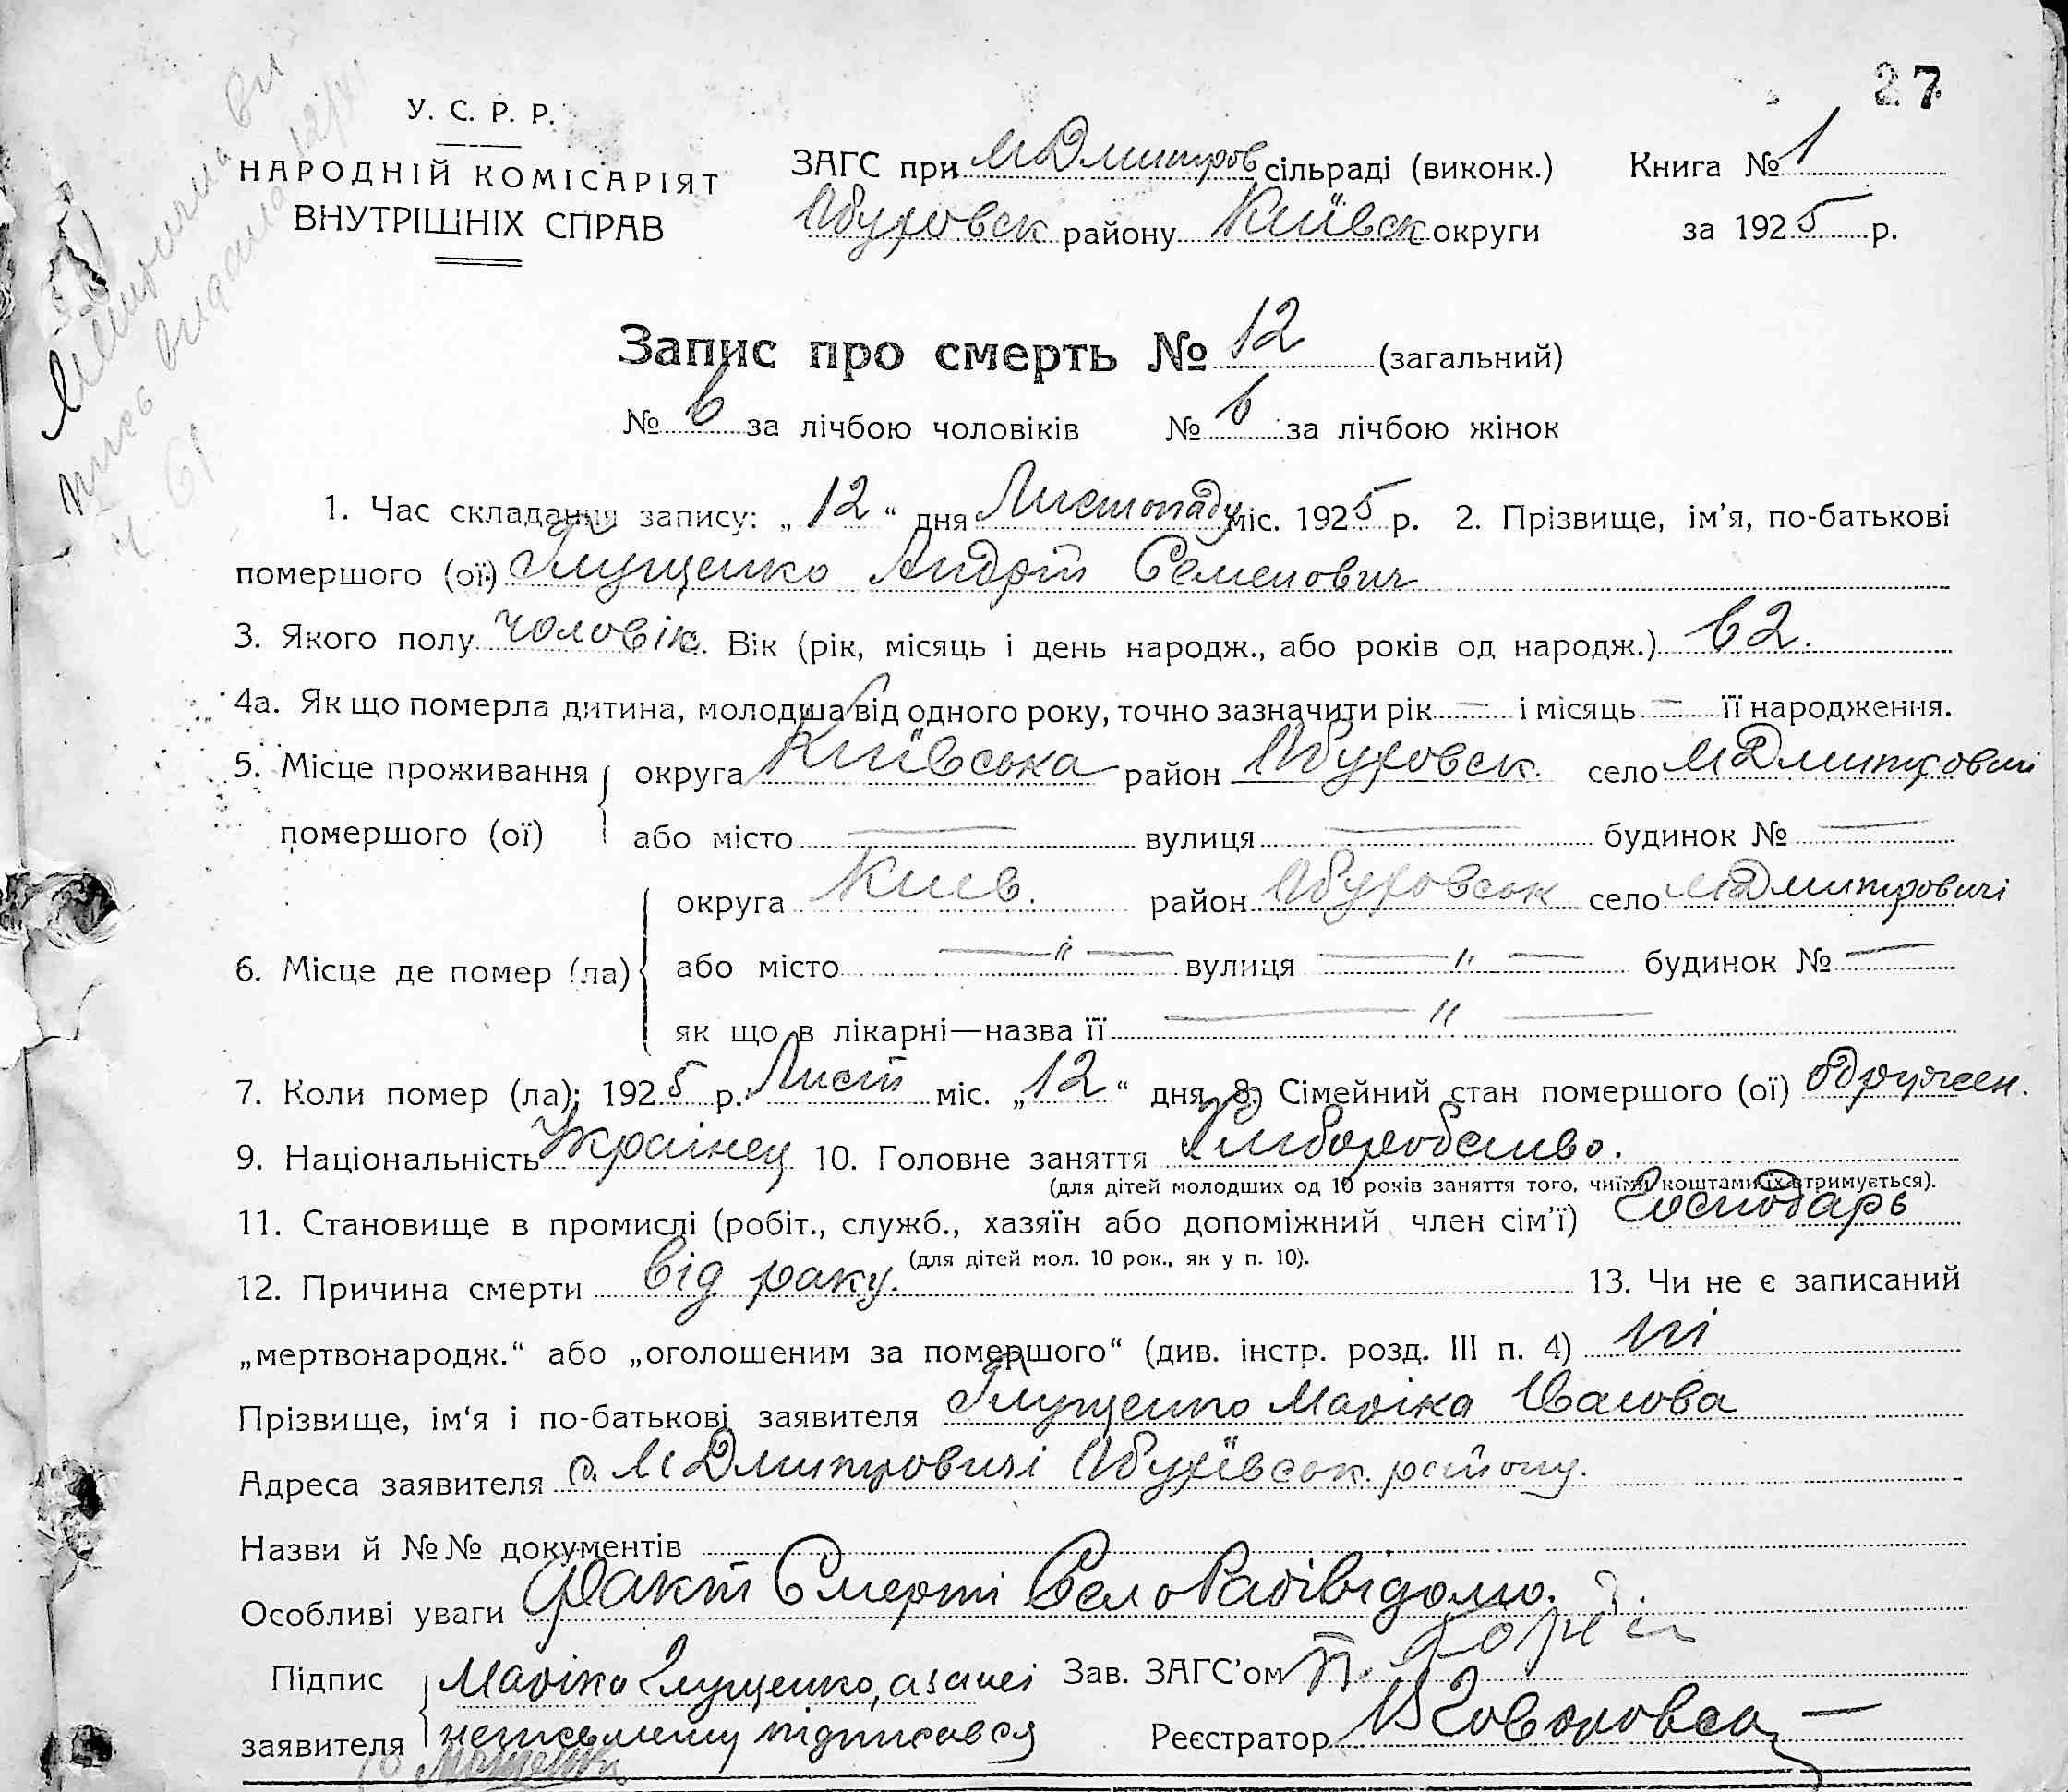 27
У. С. Р. Р.
НАРОДНІЙ КОМІСАРІЯТ
ВНУТРІШНІХ СПРАВ
ЗАГС при МДмитров сільраді (виконк.) Книга № 1
Обуховск району Київск округи за 1925 р.
Запис про смерть № 12 (загальний)
№ 6 за лічбою чоловіків № 6 за лічбою жінок
1. Час складання запису: „12“ дня Листопаду міс. 1925 р. 2. Прізвище, ім'я, по-батькові
помершого (ої) Глущенко Андрій Семенович
3. Якого полу чоловік. Вік (рік, місяць і день народж., або років од народж.) 62.
4а. Як що померла дитина, молодша від одного року, точно зазначити рік — і місяць — її народження.
5. Місце проживання округа Київська район Обуховск. село МДмитровичі
помершого (ої) або місто — вулиця — будинок № —
округа Киев. район Обуховськ село МДмитровичі
6. Місце де помер (ла) або місто — " — вулиця — " — будинок № —
як що в лікарні—назва її — " —
7. Коли помер (ла): 1925 р. Лист міс. „12“ дня 8. Сімейний стан помершого (ої) Одружен.
9. Національність Украінец 10. Головне заняття Хліборобство.
(для дітей молодших од 10 років заняття того, чиїми коштами їх втримується).
11. Становище в промислі (робіт., служб., хазяїн або допоміжний член сім'ї) Господарь
(для дітей мол. 10 рок., як у п. 10).
12. Причина смерти від раку. 13. Чи не є записаний
„мертвонародж.“ або „оголошеним за помершого“ (див. інстр. розд. III п. 4) ні
Прізвище, ім'я і по-батькові заявителя Глущенко Маріка Іванова
Адреса заявителя с. МДмитровичі Обухівськ. району.
Назви й №№ документів
Особливі уваги Факт Смерти СелоРадівідомо.
Підпис Маріка Глущенко, а за неі Зав. ЗАГС'ом
заявителя неписьмену підписався Реєстратор